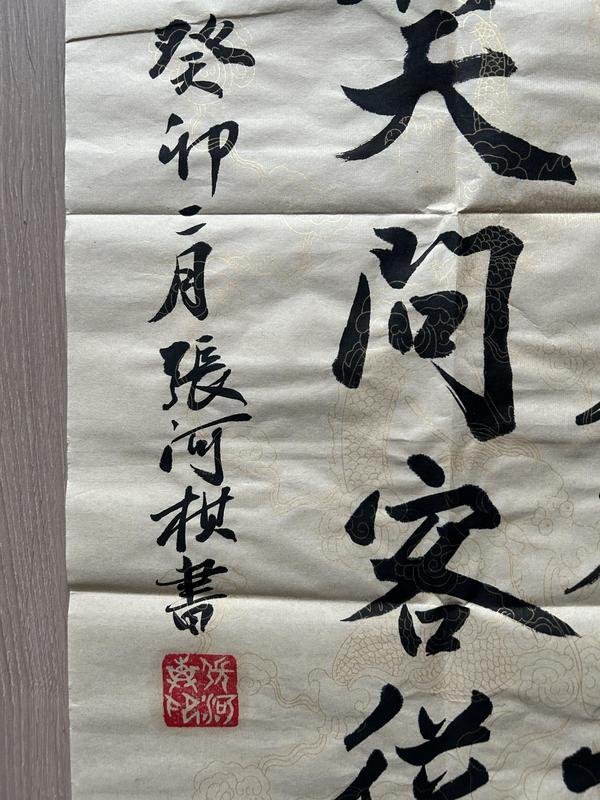 笑問客從
癸卯二月張河棋書